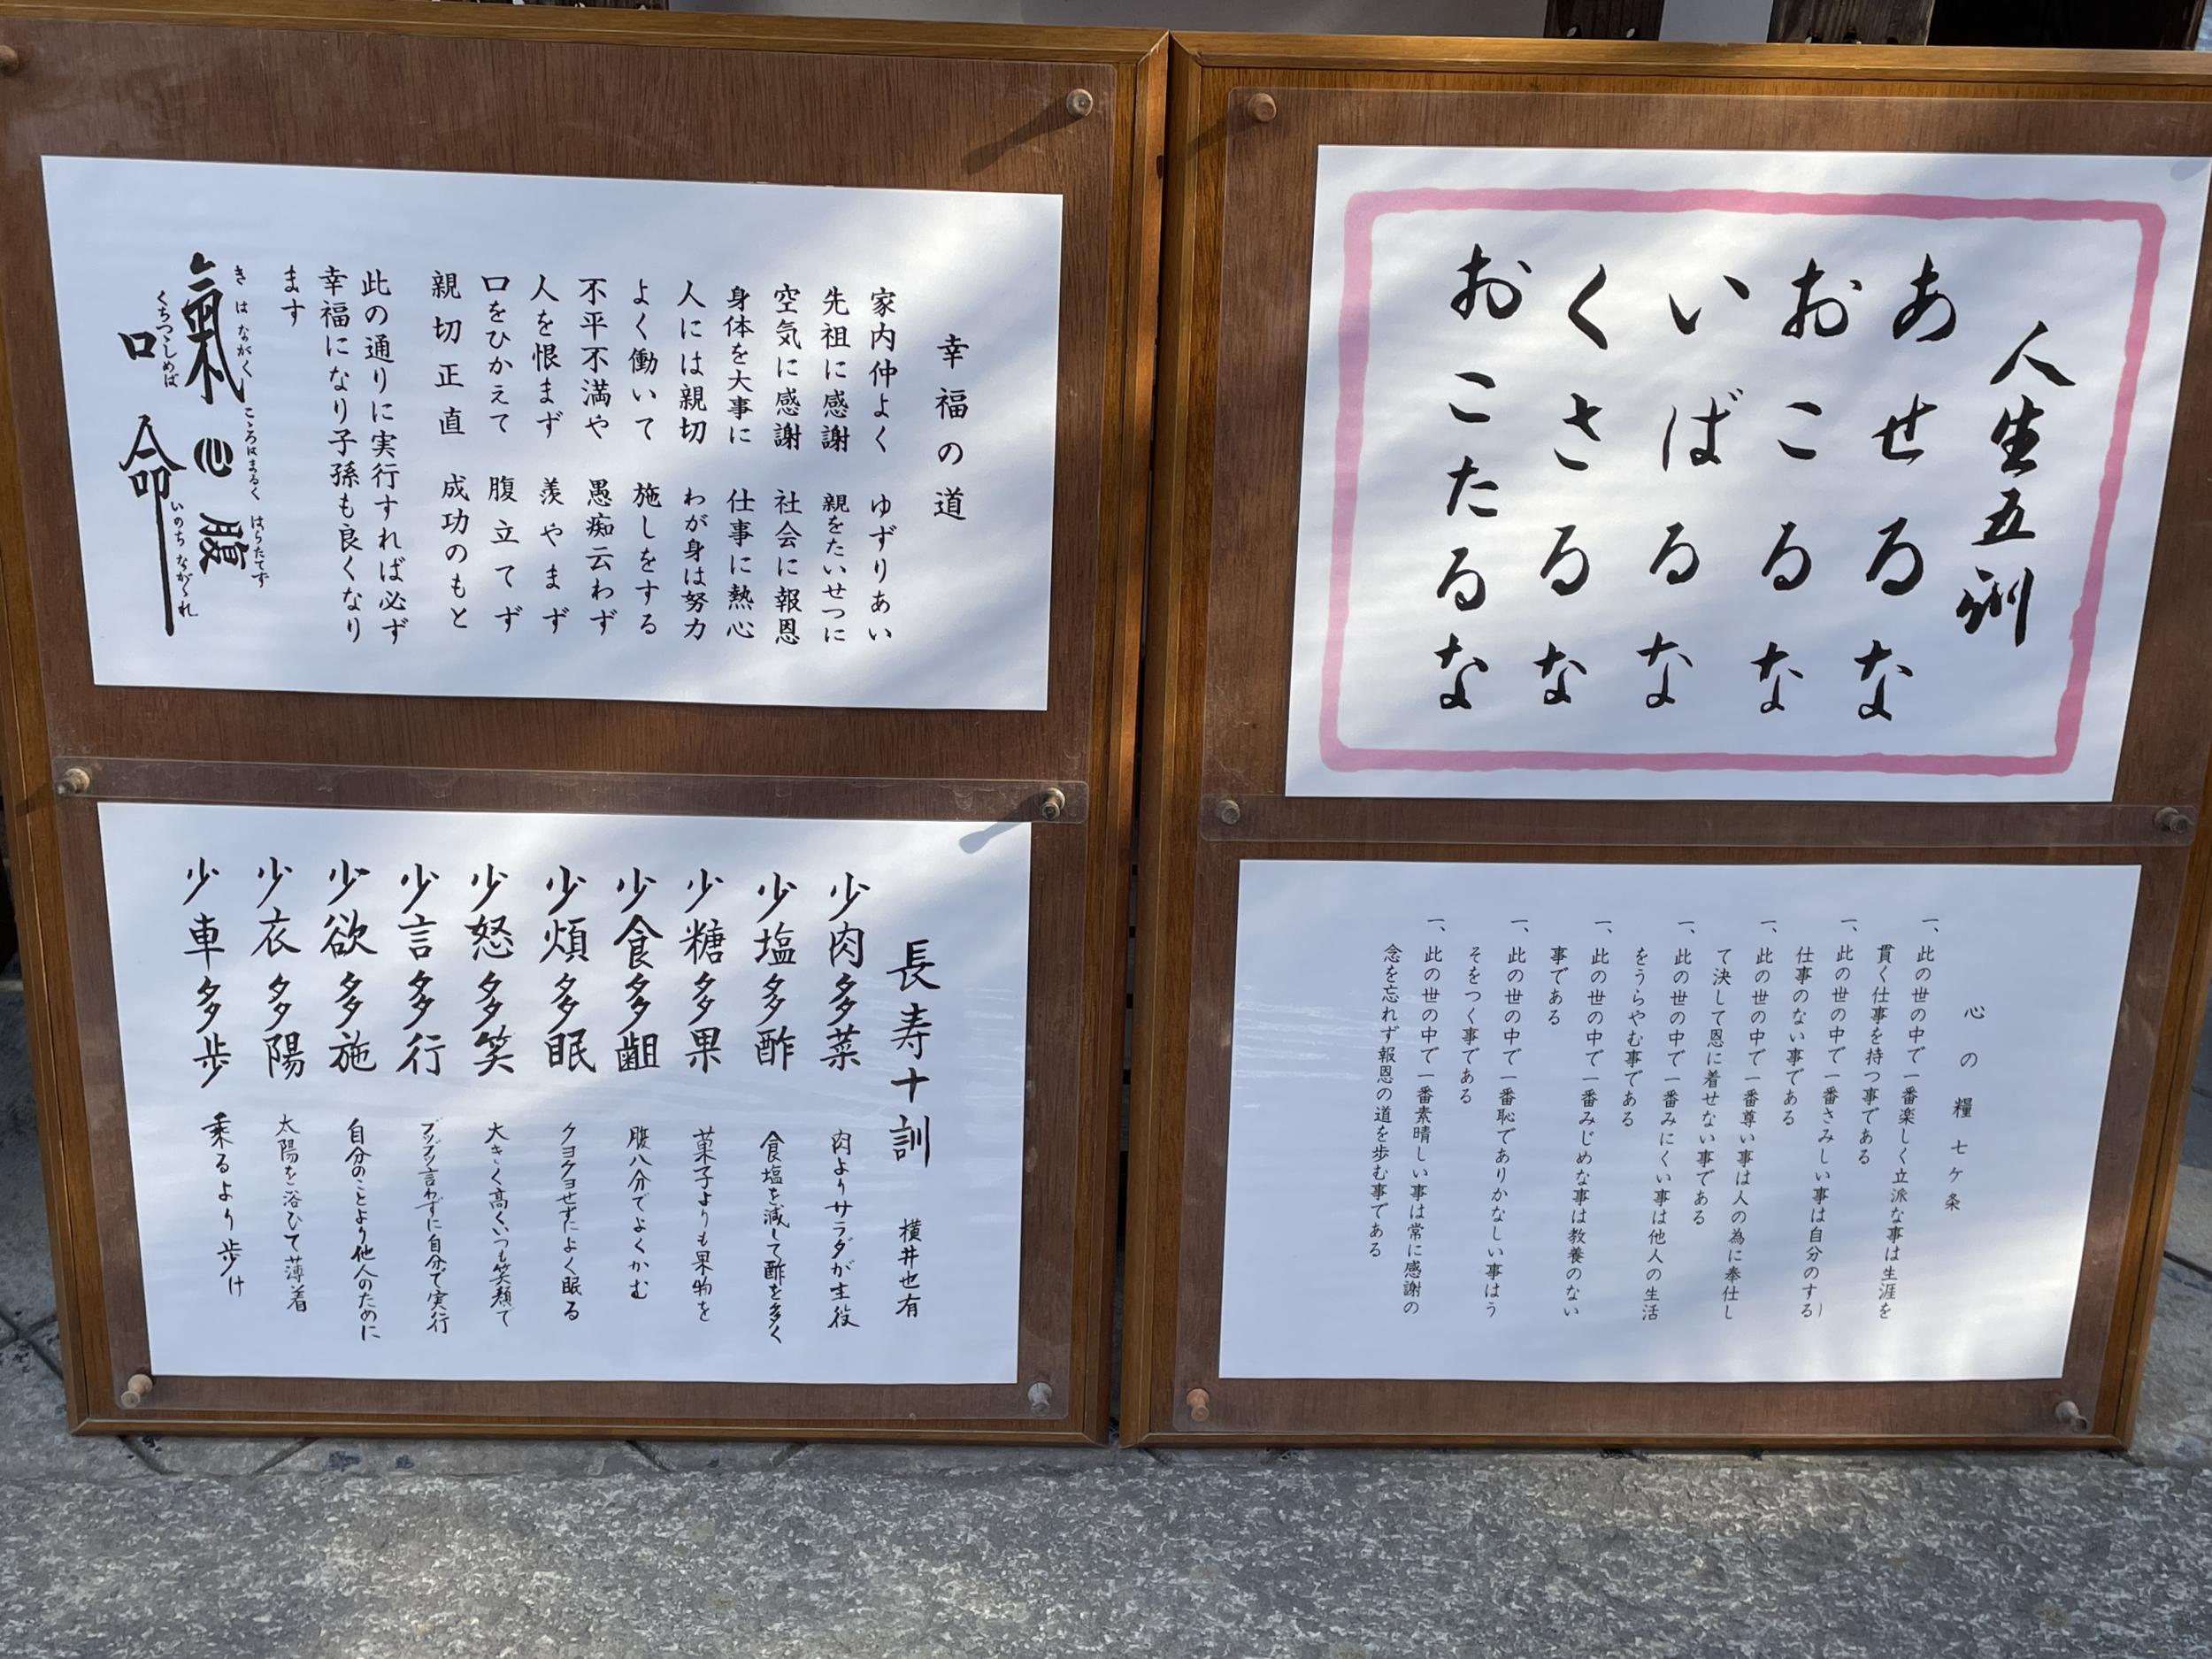 人生五訓
あせるな
おこるな
いばるな
くさるな
おこたるな
心の糧七ケ条
一、此の世の中で一番楽しく立派な事は生涯を
貫く仕事を持つ事である
一、此の世の中で一番さみしい事は自分のする
仕事のない事である
一、此の世の中で一番尊い事は人の為に奉仕し
て決して恩に着せない事である
一、此の世の中で一番みにくい事は他人の生活
をうらやむ事である
一、此の世の中で一番みじめな事は教養のない
事である
一、此の世の中で一番恥でありかなしい事はう
そをつく事である
一、此の世の中で一番素晴しい事は常に感謝の
念を忘れず報恩の道を歩む事である
幸福の道
家内仲よく ゆずりあい
先祖に感謝 親をたいせつに
空気に感謝 社会に報恩
身体を大事に 仕事に熱心
人には親切 わが身は努力
よく働いて 施しをする
不平不満や 愚痴云わず
人を恨まず 羨やまず
口をひかえて 腹立てず
親切正直 成功のもと
此の通りに実行すれば必ず
幸福になり子孫も良くなり
ます
きはながく こころはまるく はらたてず
氣 心 腹
くちつつしめば いのちながかれ
口 命
長寿十訓 横井也有
少肉多菜 肉よりサラダが主役
少塩多酢 食塩を減して酢を多く
少糖多果 菓子よりも果物を
少食多齟 腹八分でよくかむ
少煩多眠 クヨクヨせずによく眠る
少怒多笑 大きく高くいつも笑顔で
少言多行 ブツブツ言わずに自分で実行
少欲多施 自分のことより他人のために
少衣多陽 太陽を浴びて薄着
少車多歩 乗るより歩け